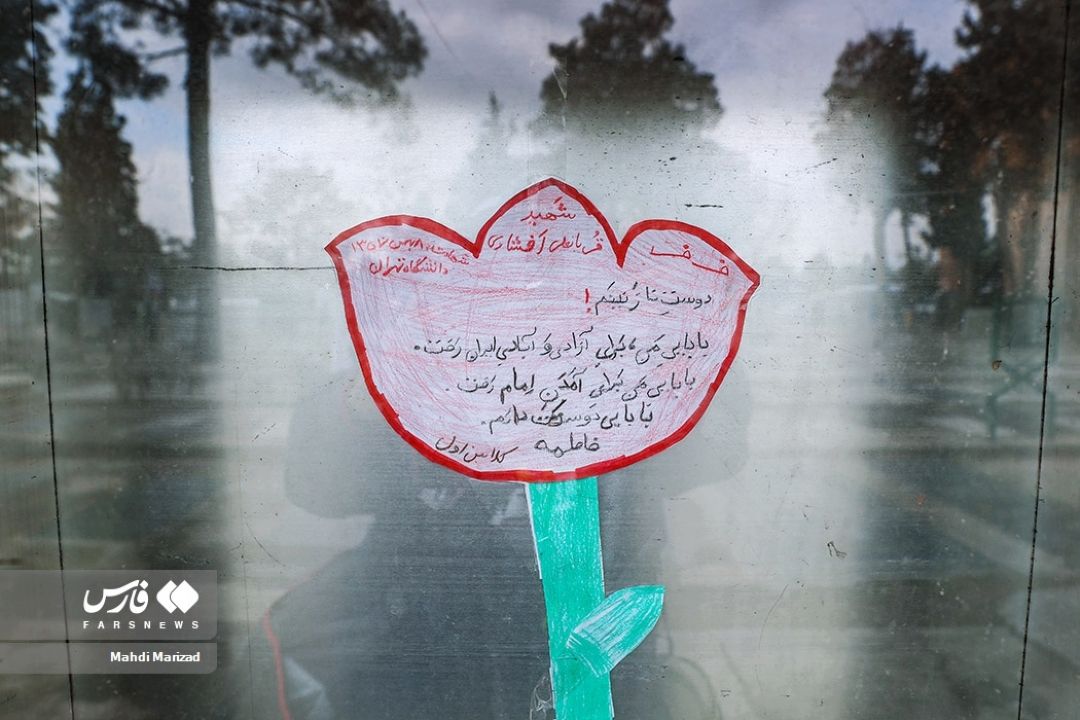 شهید
قُربانعلی افشاری
ف ف
شهادت: ۸ بهمن ۱۳۵۷
دانشگاه تهران
دوستِ نازَنینَم!
بابایی من، برایِ آزادی و آبادیِ ایران رفت.
بابایی من برای آمَدَنِ اِمام رفت.
بابایی دوستت دارم.
فاطمه
کلاس اول
فارس
FARSNEWS
Mahdi Marizad